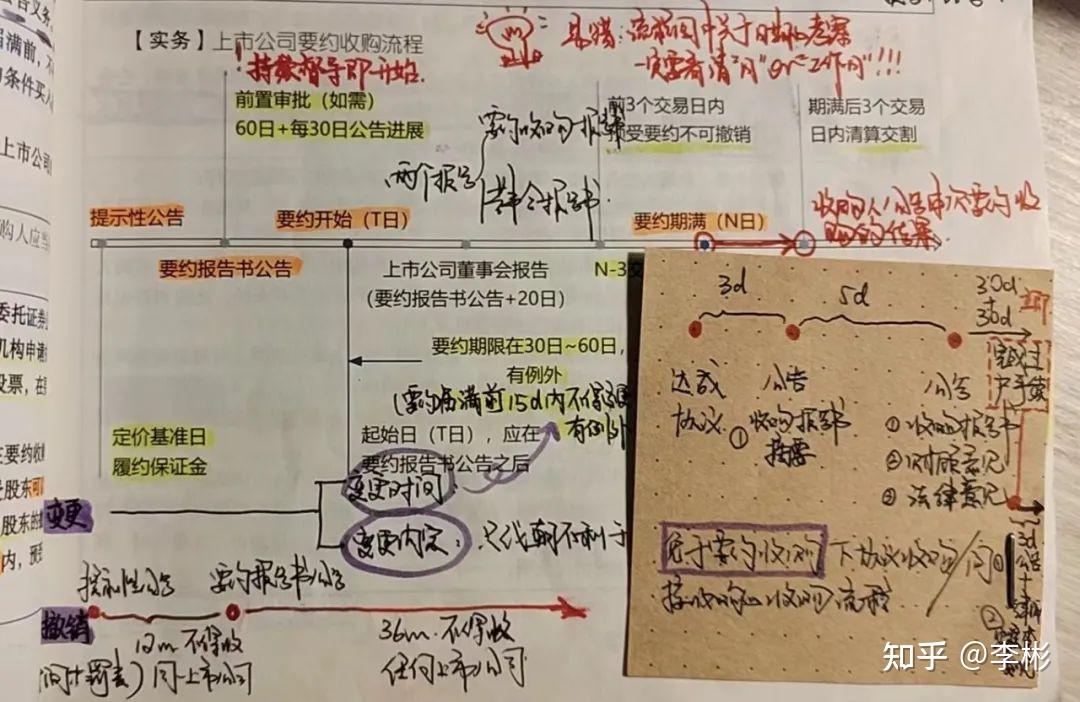 【实务】上市公司要约收购流程
！持续督导即开始.
易错：流程图中关于时间考察
一定要看清"月"or"工作日"!!!
前置审批（如需）
60日+每30日公告进展
要约收购报告书
两个报告
董事会报告书
前3个交易日内
预受要约不可撤销
期满后3个交易
日内清算交割
提示性公告
要约开始（T日）
要约期满（N日）
收购人公告本次要约收
购的结果
要约报告书公告
上市公司董事会报告
(要约报告书公告+20日）
N-3交
要约期限在30日~60日，
有例外
(要约届满前15d内不得变更
有例外
定价基准日
履约保证金
起始日（T日），应在
要约报告书公告之后
变更
变更时间
变更内容：只能朝不利于
提示性公告
要约报告书公告
撤销
12m不得收
同一上市公司
36m.不得收
任何上市公司
3d
5d
30d
+
30d
达成
协议
公告
①收购报告书
摘要
公告
①收购报告书
②财顾意见
③法律意见
完成过
户手续
3d
公告
免于要约收购
下协议收购/间
接收购的收购流程
上市公司
购人应当
委托证券
机构申请
股票，在
主要约收购
股东可
股东的
内，预受
知乎 @李彬